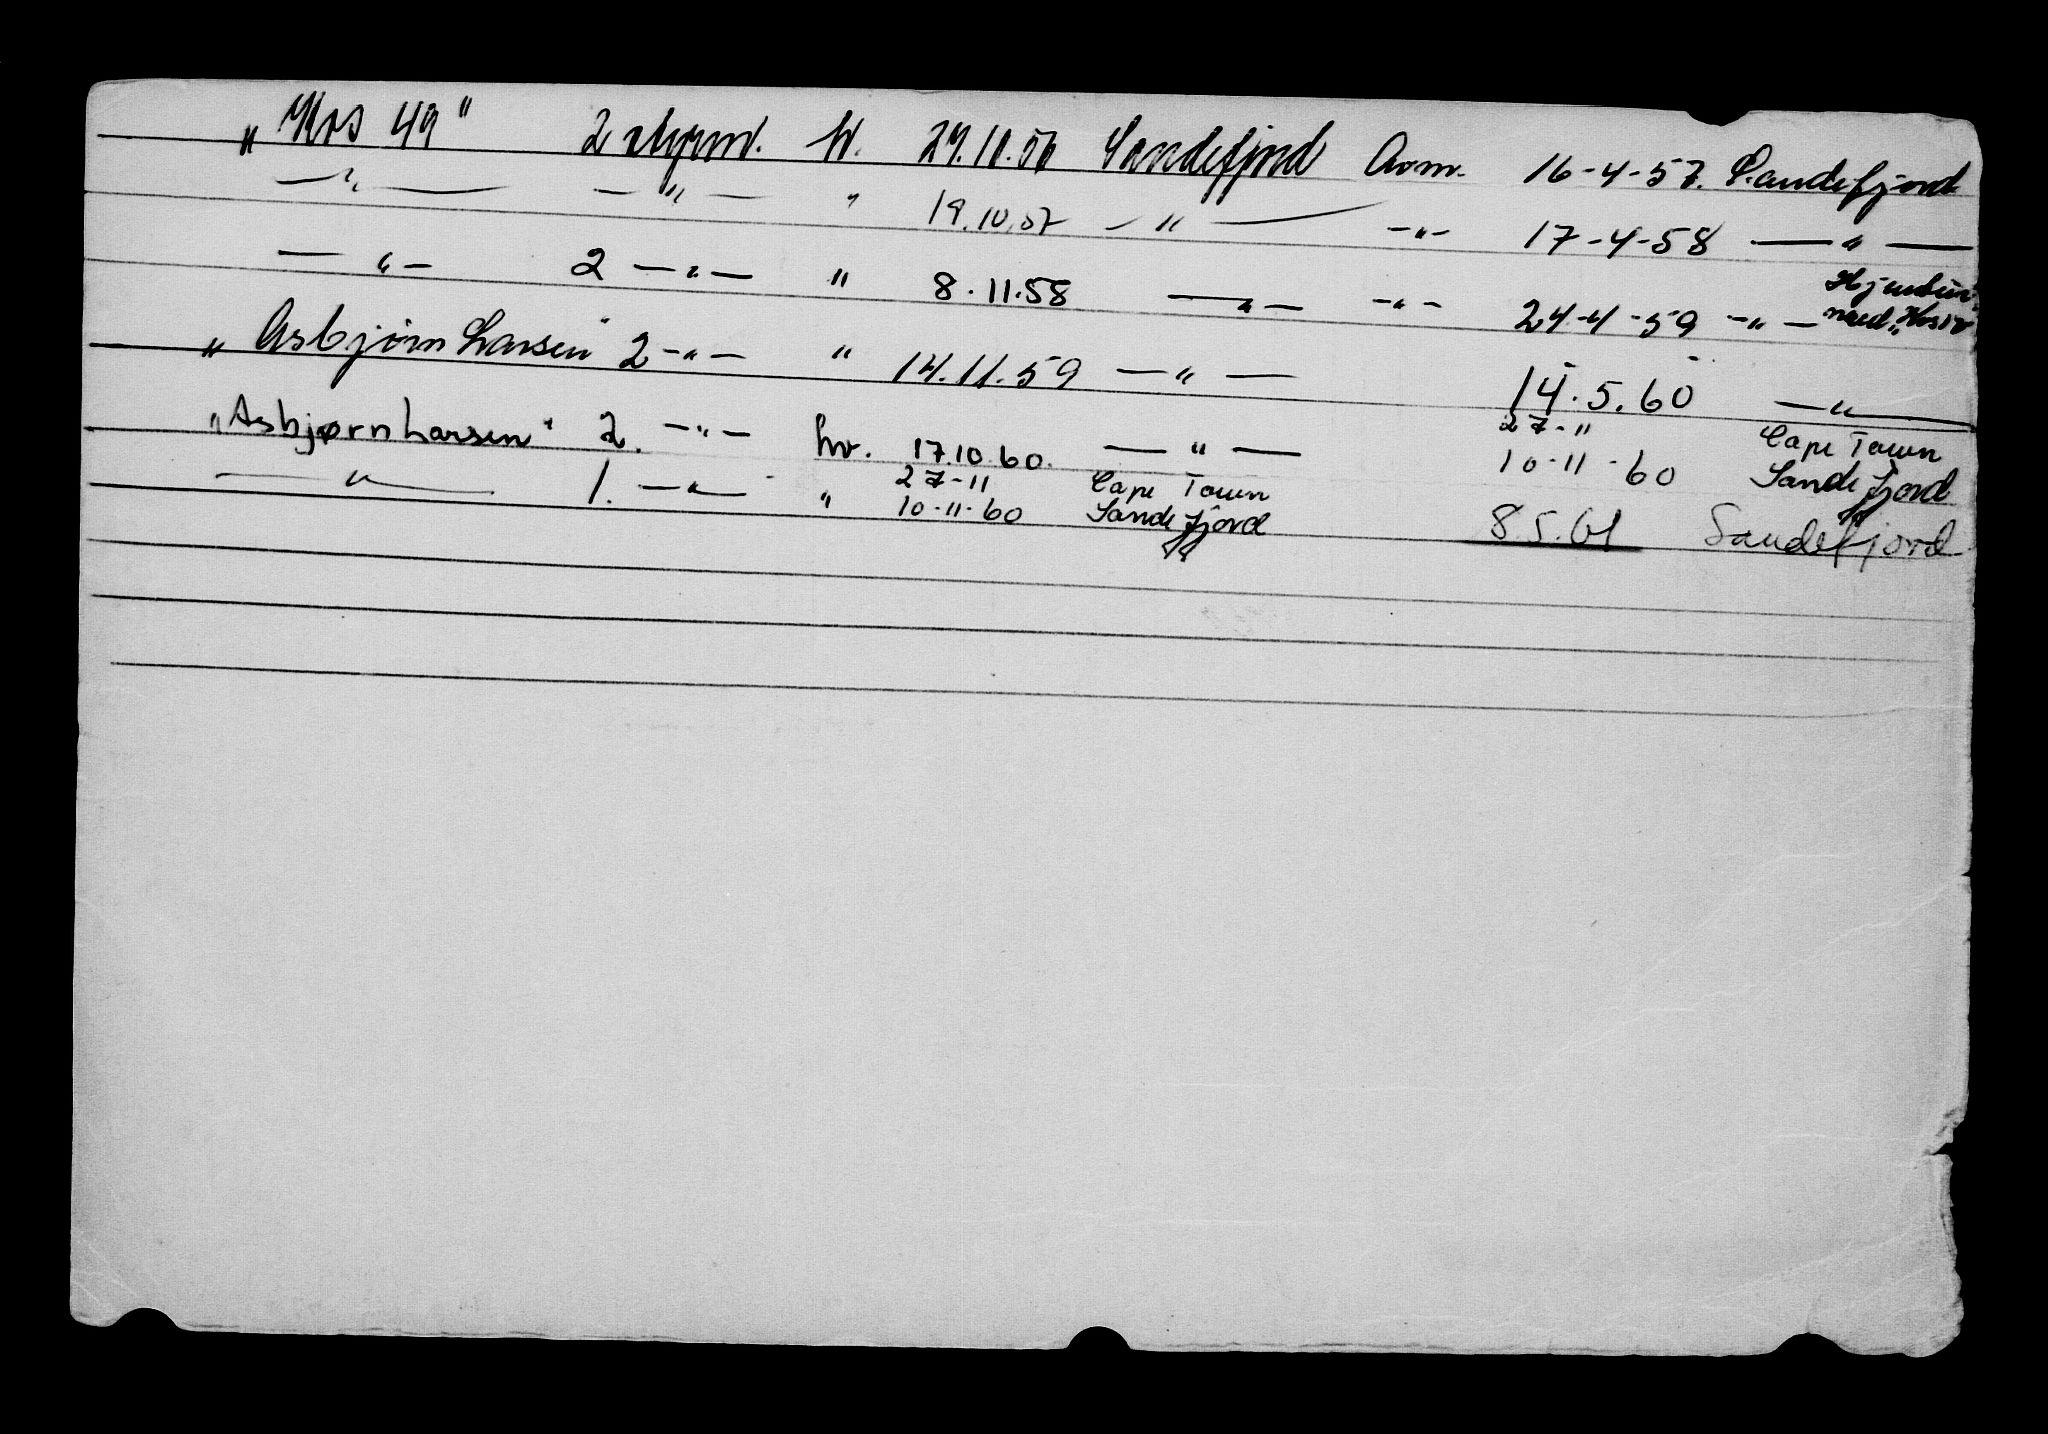 „Kos 49" 2 styrm. hv. 29.10.56 Sandefjord Avm. 16-4-57. Sandefjord
— " — — " — " 19.10.57 — " — — " — 17-4-58 — " —
— " — 2 — " — " 8.11.58 — " — — " — 24-4-59 — " — med „Kos
„Asbjørn Larsen" 2 — " — " 14.11.59 — " — 14.5.60 — " —
„Asbjørn Larsen" 2. — " — hv. 17.10.60. — " — 27-11 Cape Town
10-11-60 Sandefjord
— " — 1. — " — " 27-11 Cape Town
10-11-60 Sandefjord 8.5.61 Sandefjord